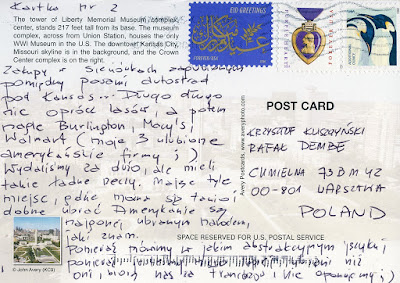 Kartka nr 2
The tower of Liberty Memorial Museum complex
center, stands 217 feet tall from its base. The museum
complex, across from Union Station, houses the only
WWI Museum in the U.S. The downtown Kansas City,
Missouri skyline is in the background, and the Crown
Center complex is on the right.
EID GREETINGS
FOREVER USA
PURPLE HEART
FOREVER
USA
Zakupy w sieciówkach
pomiędzy pasami autostrad
pod Kansas... Długo długo
nic oprócz lasów, a potem
nagle Burlington, Macy's i
Walmart (moje 3 ulubione
amerykańskie firmy ;)
Wydaliśmy za dużo, ale mieli
takie ładne rzeczy. Mając tyle
miejsc, gdzie można się taniej i
dobrze ubrać Amerykanie są
najgorzej ubranym narodem,
jaki znam.
Ponieważ mówimy w jakim abstrakcyjnym języku i
ponieważ jesteśmy ubrani niż
oni, biorą nas za i nie oponujemy ;)
Avery Postcards, www.averyphoto.com
POST CARD
KRZYSZTOF KUSZYŃSKI
RAFAŁ DEMBE
CHMIELNA 73B M 42
00-801 WARSZAWA
POLAND
© John Avery (KC9)
SPACE RESERVED FOR U.S. POSTAL SERVICE